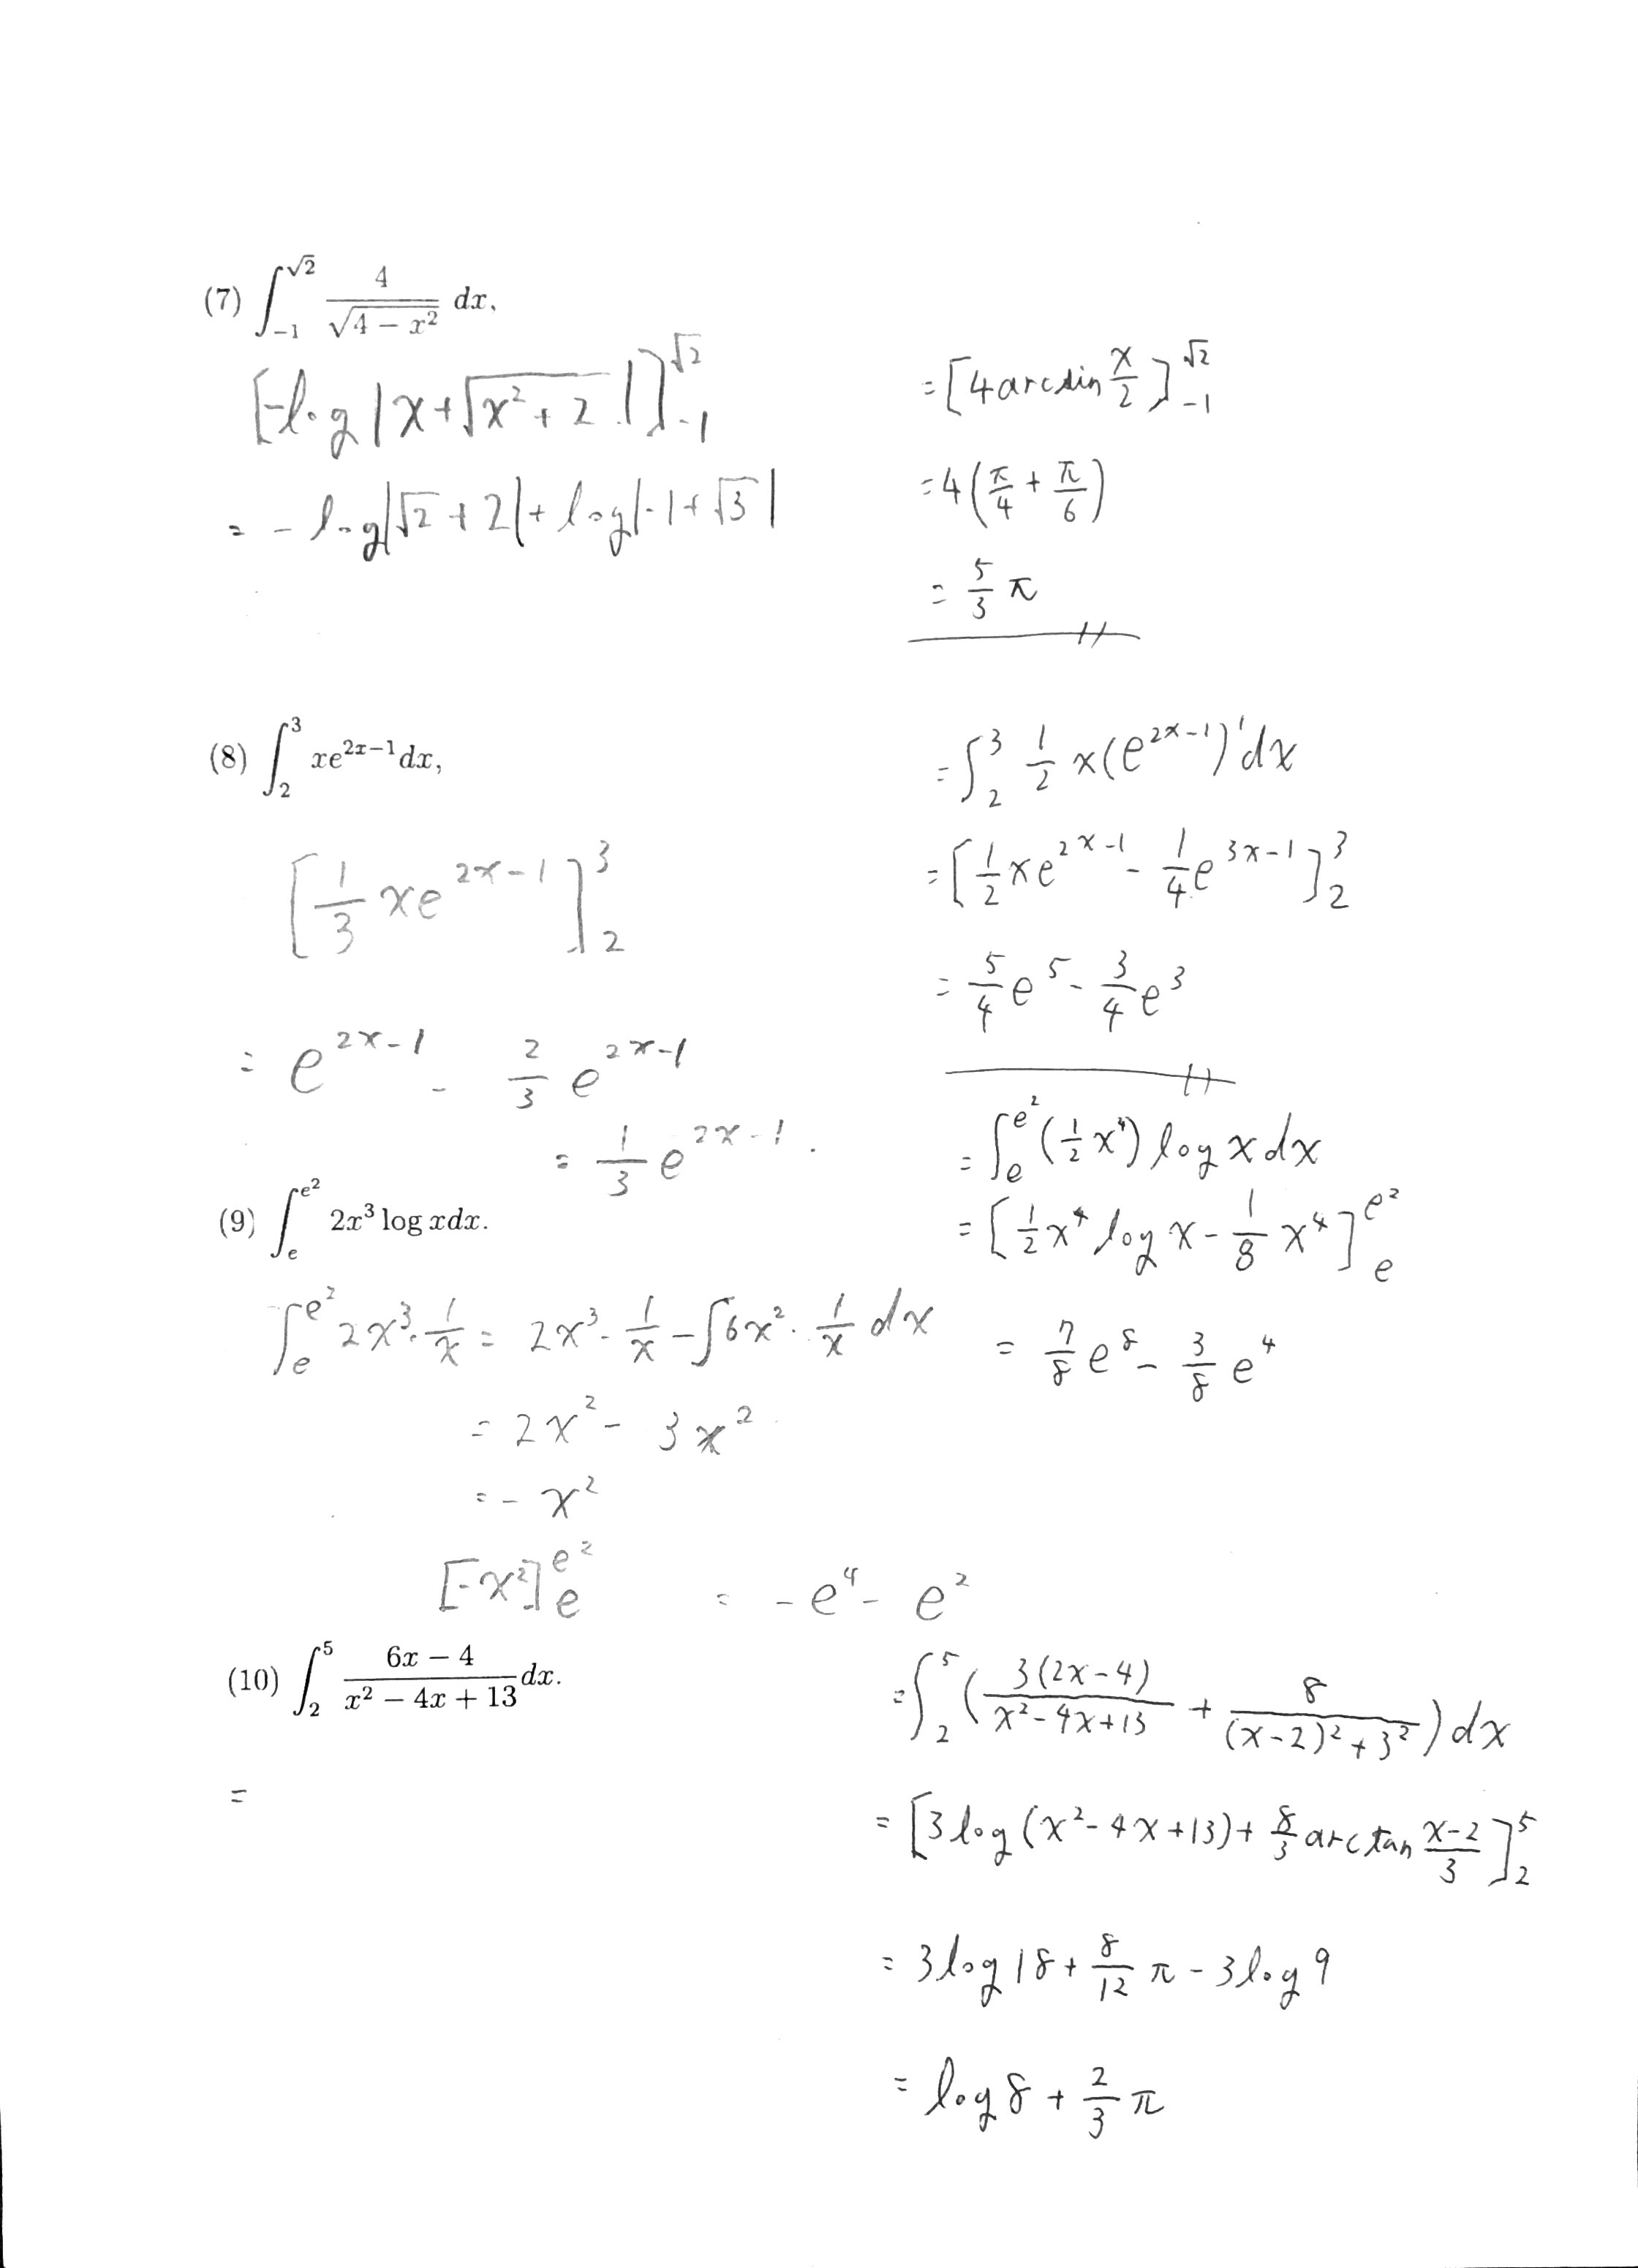 (7) ∫_{-1}^{√2} 4/√(4 − x²) dx,
[-log|x+√(x²+2)|]_{-1}^{√2}
= -log|√2+2|+log|-1+√3|
=[4arcsin x/2]_{-1}^{√2}
=4(π/4 + π/6)
= 5/3 π
(8) ∫_2^3 xe^{2x−1}dx,
[1/3 xe^{2x-1}]_2^3
= e^{2x-1} - 2/3 e^{2x-1}
= 1/3 e^{2x-1}.
=∫_2^3 1/2 x(e^{2x-1})'dx
=[1/2 xe^{2x-1} - 1/4 e^{3x-1}]_2^3
= 5/4 e^5 - 3/4 e^3
(9) ∫_e^{e²} 2x³ log xdx.
∫_e^{e²} 2x³·1/x = 2x³·1/x - ∫6x²·1/x dx
= 2x² - 3x²
= - x²
[-x²]_e^{e²} = -e⁴ - e²
=∫_e^{e²} (1/2 x⁴) log x dx
=[1/2 x⁴ log x - 1/8 x⁴]_e^{e²}
= 7/8 e⁸ - 3/8 e⁴
(10) ∫_2^5 (6x − 4)/(x² − 4x + 13) dx.
=
=∫_2^5 (3(2x-4)/(x²-4x+13) + 8/((x-2)²+3²)) dx
= [3log(x²-4x+13)+ 8/3 arctan (x-2)/3]_2^5
= 3log18+ 8/12 π - 3log9
= log8 + 2/3 π